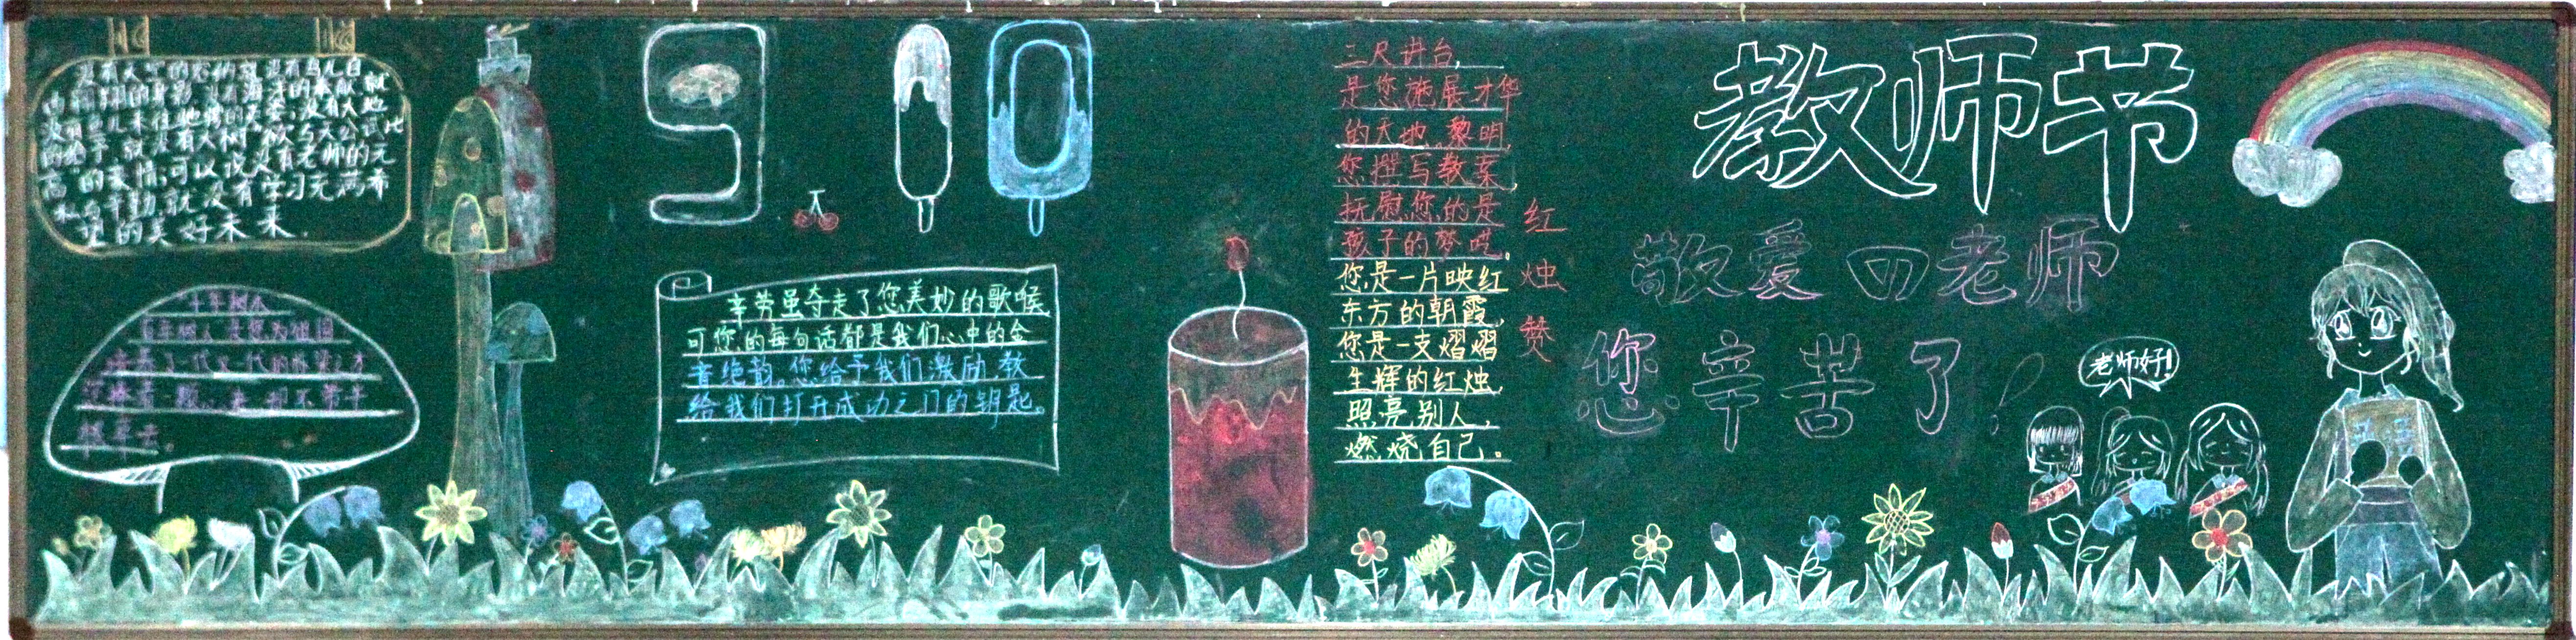 没有太阳的恩怕就没有鸟儿自
由翱翔的身影，没有海洋的奉献，就
没有鱼儿来往
的给予，就没有大树
高"的表情，可以说没有老师的无
私与辛勤就没有学习充满希
望的美好未来。
十年树木
百年树人，是您为祖国
培养了一代又一代的栋梁之才
910
辛劳虽夺走了您美妙的歌喉
可您的每句话都是我们心中的金
音绝韵。您给予我们激励，教
给我们打开成功之门的钥匙。
三尺讲台，
是您施展才华
的天地。黎明，
您撰写教案，
抚慰您的是
孩子的梦呓。
您是一片映红
东方的朝霞，
您是一支熠熠
生辉的红烛，
照亮别人，
燃烧自己。
红烛赞
教师节
敬爱的老师
您辛苦了！
老师好！